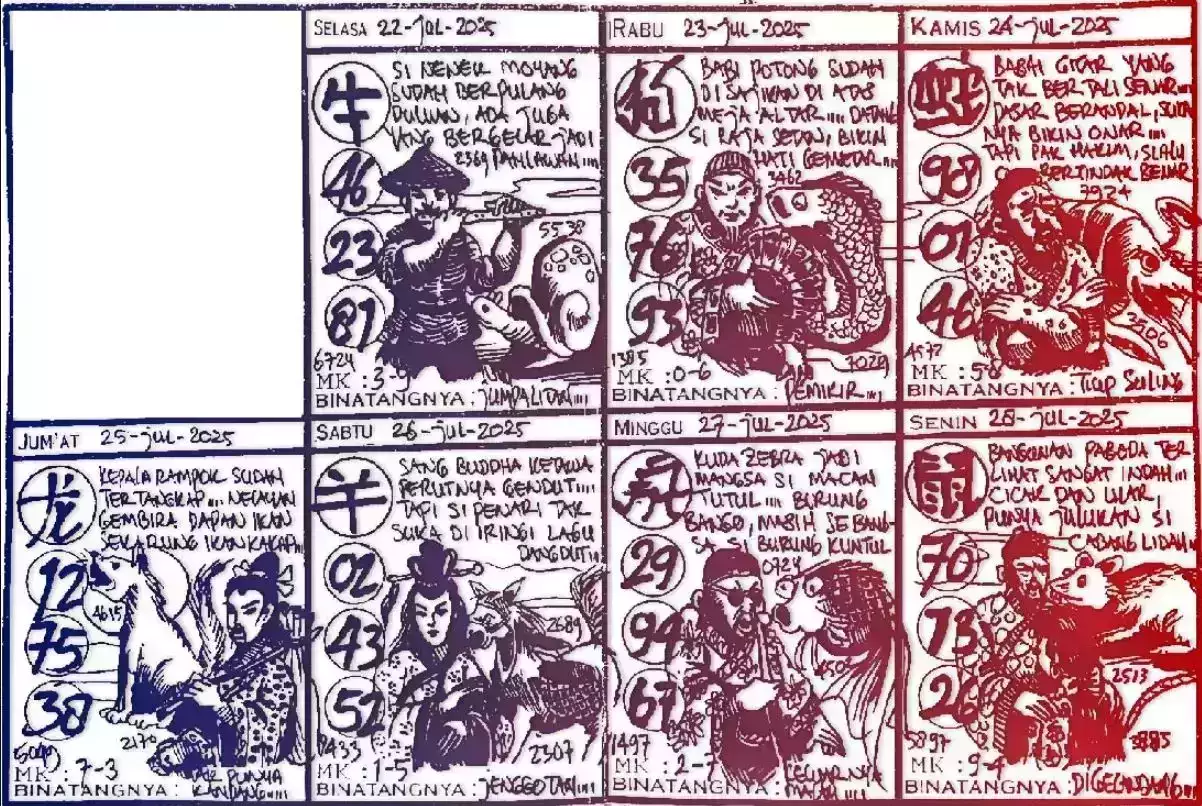 SELASA 22-JUL-2025
牛
SI NENEK MOYANG
SUDAH BERPULANG
DULUAN, ADA JUGA
YANG BERGELAR JADI
2369 PAHLAWAN....
46
23
81
5538
6724
MK : 3-9
BINATANGNYA : JUMPALITAN....
RABU 23-JUL-2025
狗
BABI POTONG SUDAH
DI SAJIKAN DI ATAS
MEJA ALTAR.... DATANG
SI RAJA SETAN, BIKIN
HATI GEMETAR....
3462
35
76
93
1385
7029
MK : 0-6
BINATANGNYA : PEMIKIR....
KAMIS 24-JUL-2025
蛇
BABAH GITAR YANG
TAK BERTALI SENAR....
DASAR BERANDAL, SUKA
NYA BIKIN ONAR....
TAPI PAK HAKIM, SLALU
BERTINDAK BENAR
3924
98
01
46
4572
MK : 5-8
BINATANGNYA : TIUP SULING
JUM'AT 25-JUL-2025
龙
KEPALA RAMPOK SUDAH
TERTANGKAP.... NELAYAN
GEMBIRA DAPAN IKAN
SEKARUNG IKAN KAKAP....
12
75
38
4615
2170
MK : 7-3
BINATANGNYA : PUNYA KANDANG....
SABTU 26-JUL-2025
羊
SANG BUDDHA KETAWA
PERUTNYA GENDUT....
TAPI SI PENARI TAK
SUKA DI IRINGI LAGU
DANGDUT....
02
43
52
2689
1433
2307
MK : 1-5
BINATANGNYA : JENGGOTAN....
MINGGU 27-JUL-2025
KUDA ZEBRA JADI
MANGSA SI MACAN
TUTUL.... BURUNG
BANGO, MASIH SEBANG-
SA SI BURUNG KUNTUL
0724
29
94
67
1497
MK : 2-7
BINATANGNYA : KELUARNYA MALAM....
SENIN 28-JUL-2025
鼠
BANGUNAN PAGODA TER
LIHAT SANGAT INDAH....
CICAK DAN ULAR,
PUNYA JULUKAN SI
CABANG LIDAH....
70
73
26
2513
5897
MK : 9-4
BINATANGNYA :